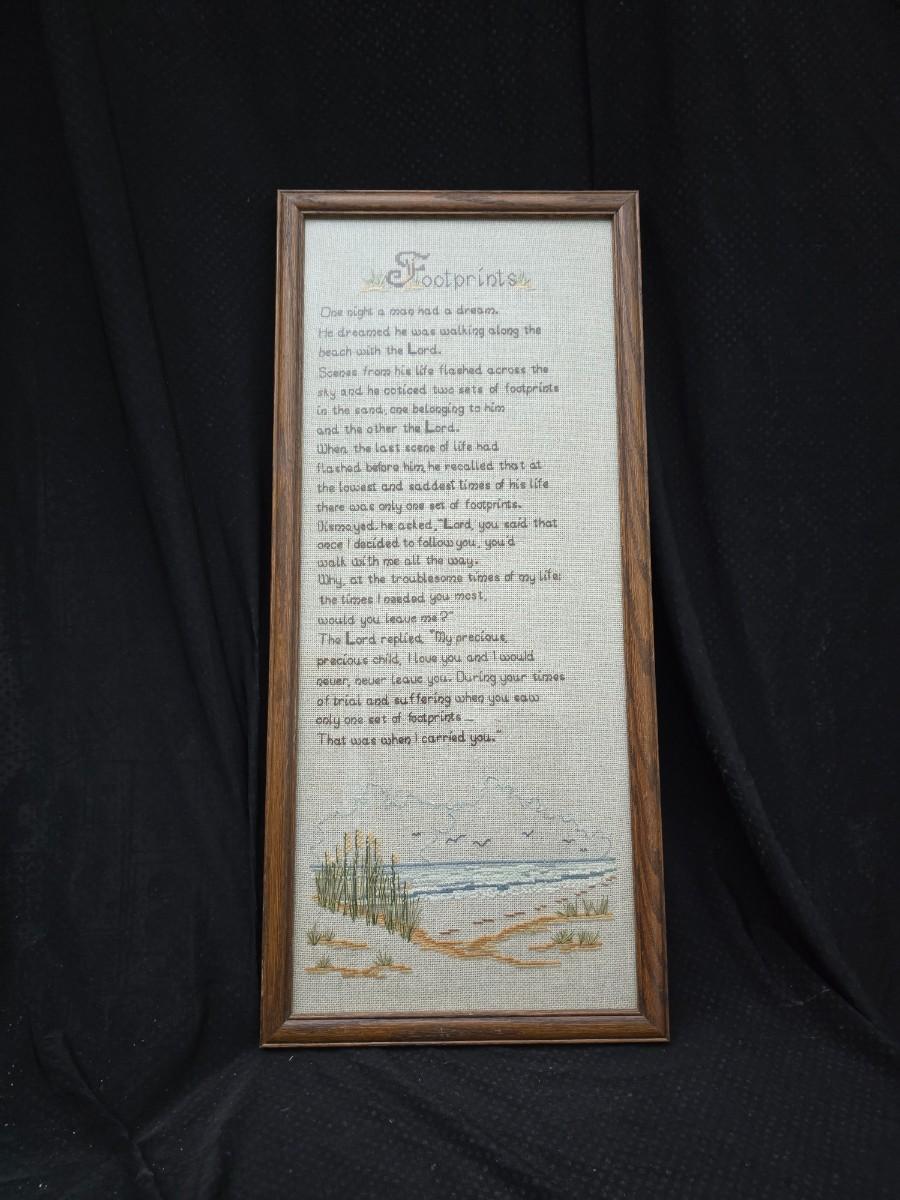 Footprints
One night a man had a dream.
He dreamed he was walking along the
beach with the Lord.
Scenes from his life flashed across the
sky and he noticed two sets of footprints
in the sand, one belonging to him
and the other the Lord.
When the last scene of life had
flashed before him, he recalled that at
the lowest and saddest times of his life
there was only one set of footprints.
Dismayed, he asked, "Lord, you said that
once I decided to follow you, you'd
walk with me all the way.
Why, at the troublesome times of my life;
the times I needed you most,
would you leave me?"
The Lord replied, "My precious,
precious child, I love you and I would
never, never leave you. During your times
of trial and suffering when you saw
only one set of footprints —
That was when I carried you."